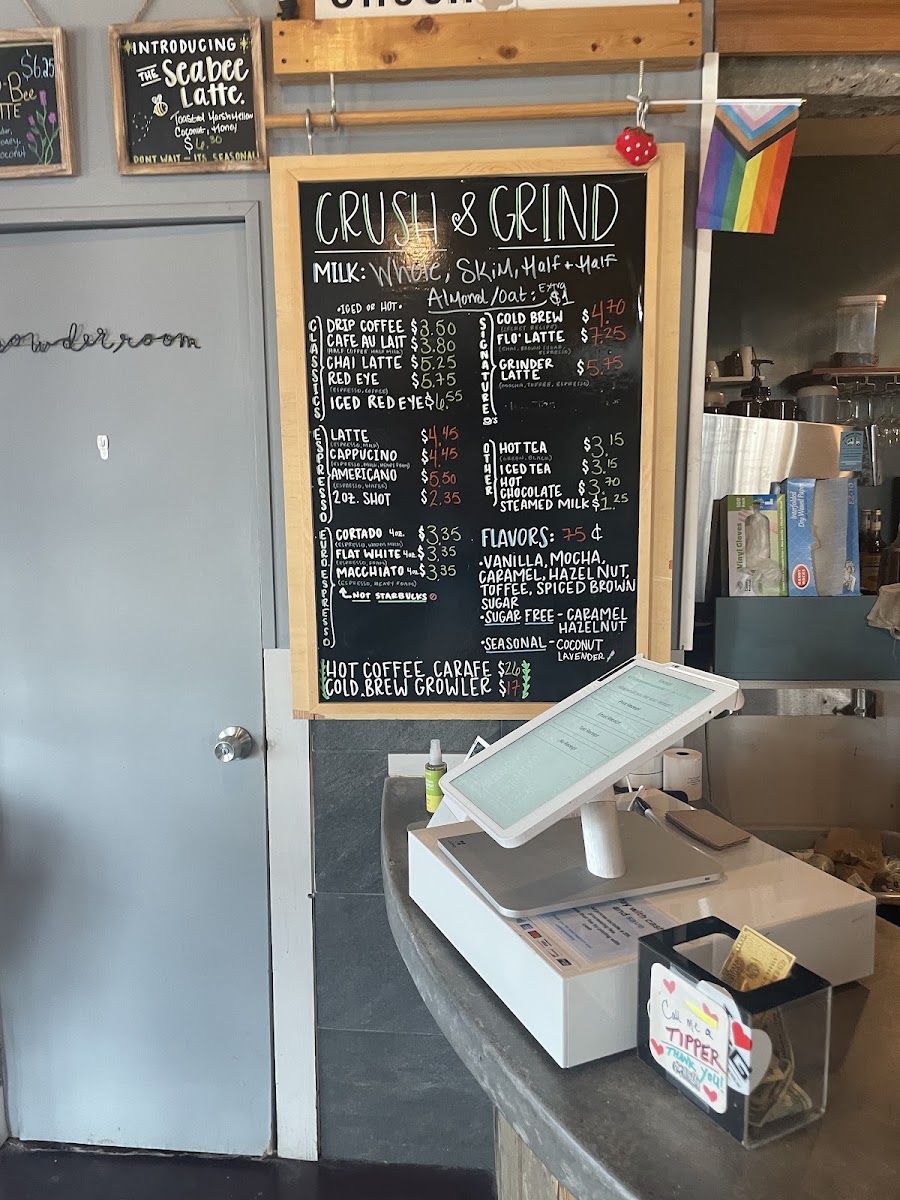 $6.25
INTRODUCING
THE Seabee
Latte.
Toasted Marshmellow
Coconut, Honey
$6.30
DONT WAIT - ITS SEASONAL
powder room
CRUSH & GRIND
MILK: Whole, Skim, Half + Half
Almond/Oat: Extra $1
•ICED OR HOT•
CLASSICS
DRIP COFFEE $3.50
CAFE AU LAIT $3.80
(HALF COFFEE HALF MILK)
CHAI LATTE $5.25
RED EYE $5.75
(ESPRESSO, COFFEE)
ICED RED EYE $6.55
ESPRESSO
LATTE $4.45
(ESPRESSO, MILK)
CAPPUCINO $4.45
(ESPRESSO, MILK, HEAVY FOAM)
AMERICANO $5.50
(ESPRESSO, WATER)
2OZ. SHOT $2.35
EURO ESPRESSO
CORTADO 4oz. $3.35
(ESPRESSO, WARM MILK)
FLAT WHITE 4oz $3.35
(ESPRESSO, FOAM)
MACCHIATO 4oz $3.35
(ESPRESSO, HEAVY FOAM)
NOT STARBUCKS
SIGNATURE
COLD BREW $4.70
(SECRET RECIPE)
FLO' LATTE $7.25
(CHAI, BROWN SUGAR, ESPRESSO)
GRINDER
LATTE $5.75
(MOCHA, TOFFEE, ESPRESSO)
OTHER
HOT TEA $3.15
(GREEN, BLACK)
ICED TEA $3.15
HOT
CHOCOLATE $3.70
STEAMED MILK $1.25
FLAVORS: 75¢
•VANILLA, MOCHA,
CARAMEL, HAZELNUT,
TOFFEE, SPICED BROWN
SUGAR
•SUGAR FREE - CARAMEL
HAZELNUT
•SEASONAL - COCONUT
LAVENDER
HOT COFFEE CARAFE $26
COLD BREW GROWLER $17
Vinyl Gloves
Interfolded
Dry Waxed Paper
Call me a
TIPPER
THANK YOU!